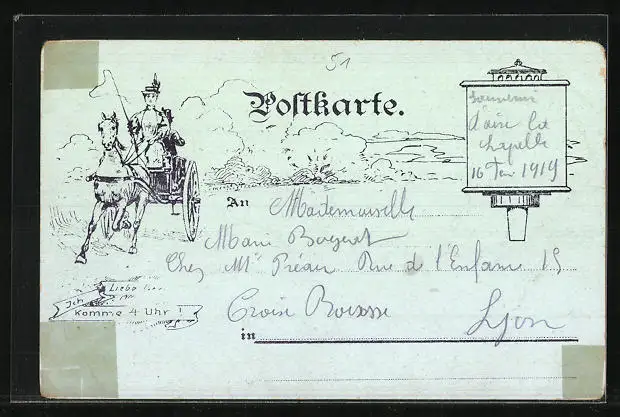 51
Postkarte.
Souvenir
d'aix la
chapelle
16 1919
An Mademoiselle
Marie
Chez Mr Préau Rue de l'Enfance 15
Croix Rousse
in Lyon
Liebe
Ich
komme 4 Uhr!